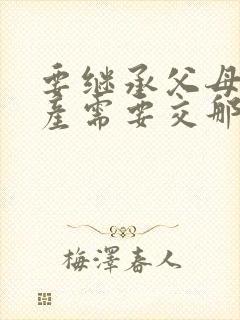 要继承父母
产需要交那
梅澤春人